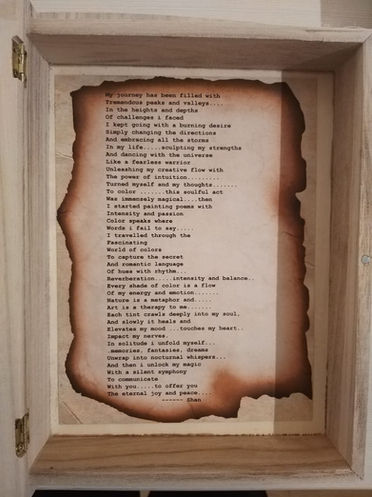 My journey has been filled with
Tremendous peaks and valleys....
In the heights and depths
Of challenges i faced
I kept going with a burning desire
Simply changing the directions
And embracing all the storms
In my life.....sculpting my strengths
And dancing with the universe
Like a fearless warrior
Unleashing my creative flow with
The power of intuition..........
Turned myself and my thoughts.......
To color .......this soulful act
Was immensely magical....then
I started painting poems with
Intensity and passion
Color speaks where
Words i fail to say....
I travelled through the
Fascinating
World of colors
To capture the secret
And romantic language
Of hues with rhythm...
Reverberation....intensity and balance..
Every shade of color is a flow
Of my energy and emotion.......
Nature is a metaphor and.....
Art is a therapy to me.......
Each tint crawls deeply into my soul,
And slowly it heals and
Elevates my mood ...touches my heart..
Impact my nerves.
In solitude i unfold myself...
.memories, fantasies, dreams
Unwrap into nocturnal whispers...
And then i unlock my magic
With a silent symphony
To communicate
With you.....to offer you
The eternal joy and peace....
------ Shan